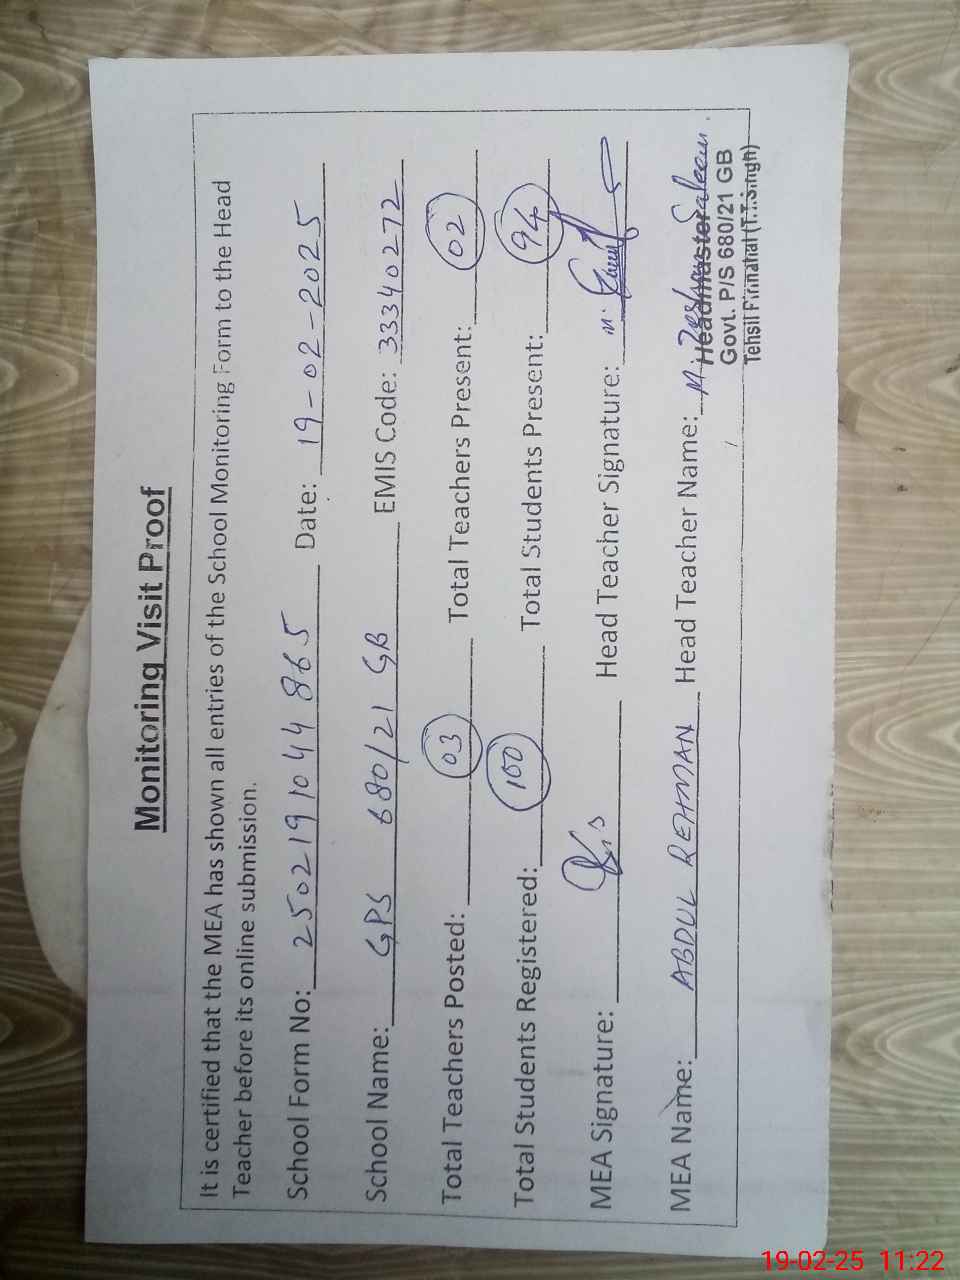 Monitoring Visit Proof
It is certified that the MEA has shown all entries of the School Monitoring Form to the Head
Teacher before its online submission.
School Form No: 2502191044865 Date: 19-02-2025
School Name: GPS 680/21 GB EMIS Code: 33340272
Total Teachers Posted: 03 Total Teachers Present: 02
Total Students Registered: 100 Total Students Present: 94
MEA Signature: Head Teacher Signature:
MEA Name: ABDUL REHMAN Head Teacher Name: M. Saleem.
Headmaster
Govt. P/S 680/21 GB
Tehsil Pirmahal (T.T.Singh)
19-02-25 11:22